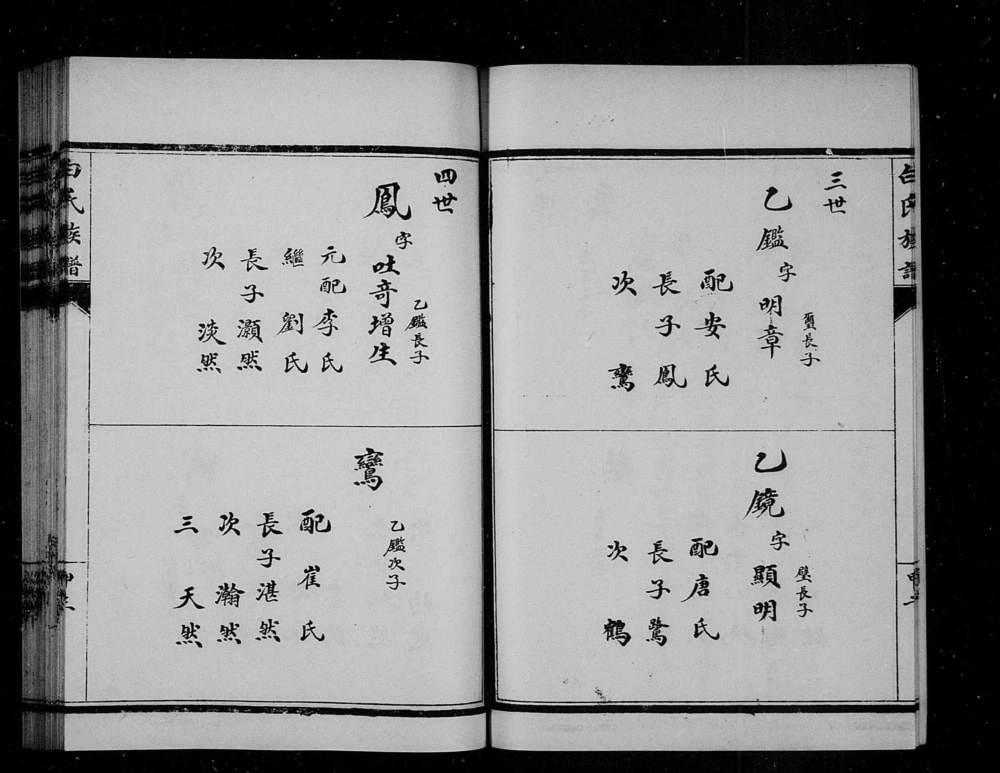 三世
乙鑑字明章
璽長子
配安氏
長子鳳
次鸞
乙鏡字顯明
璧長子
配唐氏
長子鷺
次鶴
四世
鳳字吐奇增生
乙鑑長子
元配李氏
繼劉氏
長子灝然
次淡然
鸞
乙鑑次子
配崔氏
長子湛然
次瀚然
三天然
氏族譜